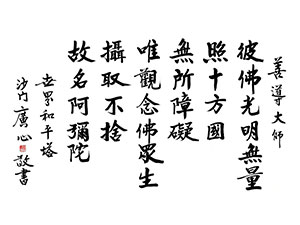 善導大師
彼佛光明無量
照十方國
無所障礙
唯觀念佛眾生
攝取不捨
故名阿彌陀
世界和平塔
沙門廣心敬書